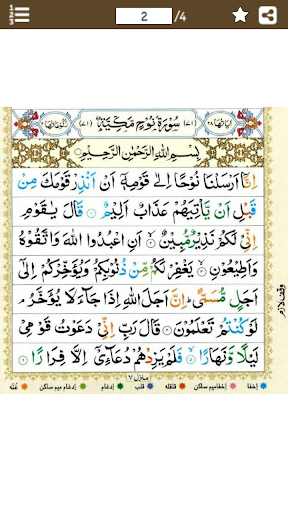 2 /4
اٰیاتها ٢٨ (٧١) سُوْرَةُ نُوْحٍ مَكِّيَّةٌ (٧١) رکوعاتها ٢
بِسْمِ اللهِ الرَّحْمٰنِ الرَّحِيْمِ
اِنَّاۤ اَرْسَلْنَا نُوْحًا اِلٰى قَوْمِهٖۤ اَنْ اَنْذِرْ قَوْمَكَ مِنْ
قَبْلِ اَنْ يَّاْتِيَهُمْ عَذَابٌ اَلِيْمٌ ۝ قَالَ يٰقَوْمِ
اِنِّيْ لَكُمْ نَذِيْرٌ مُّبِيْنٌ ۝ اَنِ اعْبُدُوا اللهَ وَاتَّقُوْهُ
وَاَطِيْعُوْنِ ۝ يَغْفِرْ لَكُمْ مِّنْ ذُنُوْبِكُمْ وَيُؤَخِّرْكُمْ اِلٰۤى
اَجَلٍ مُّسَمًّى ؕ اِنَّ اَجَلَ اللهِ اِذَا جَآءَ لَا يُؤَخَّرُ ۘ
لَوْ كُنْتُمْ تَعْلَمُوْنَ ۝ قَالَ رَبِّ اِنِّيْ دَعَوْتُ قَوْمِيْ
لَيْلًا وَّنَهَارًا ۝ فَلَمْ يَزِدْهُمْ دُعَآءِيْۤ اِلَّا فِرَارًا ۝
وقف لازم
منزل ٧
اِخفا اِخفا میم ساکن قلقله قلب اِدغام اِدغام میم ساکن غُنّه